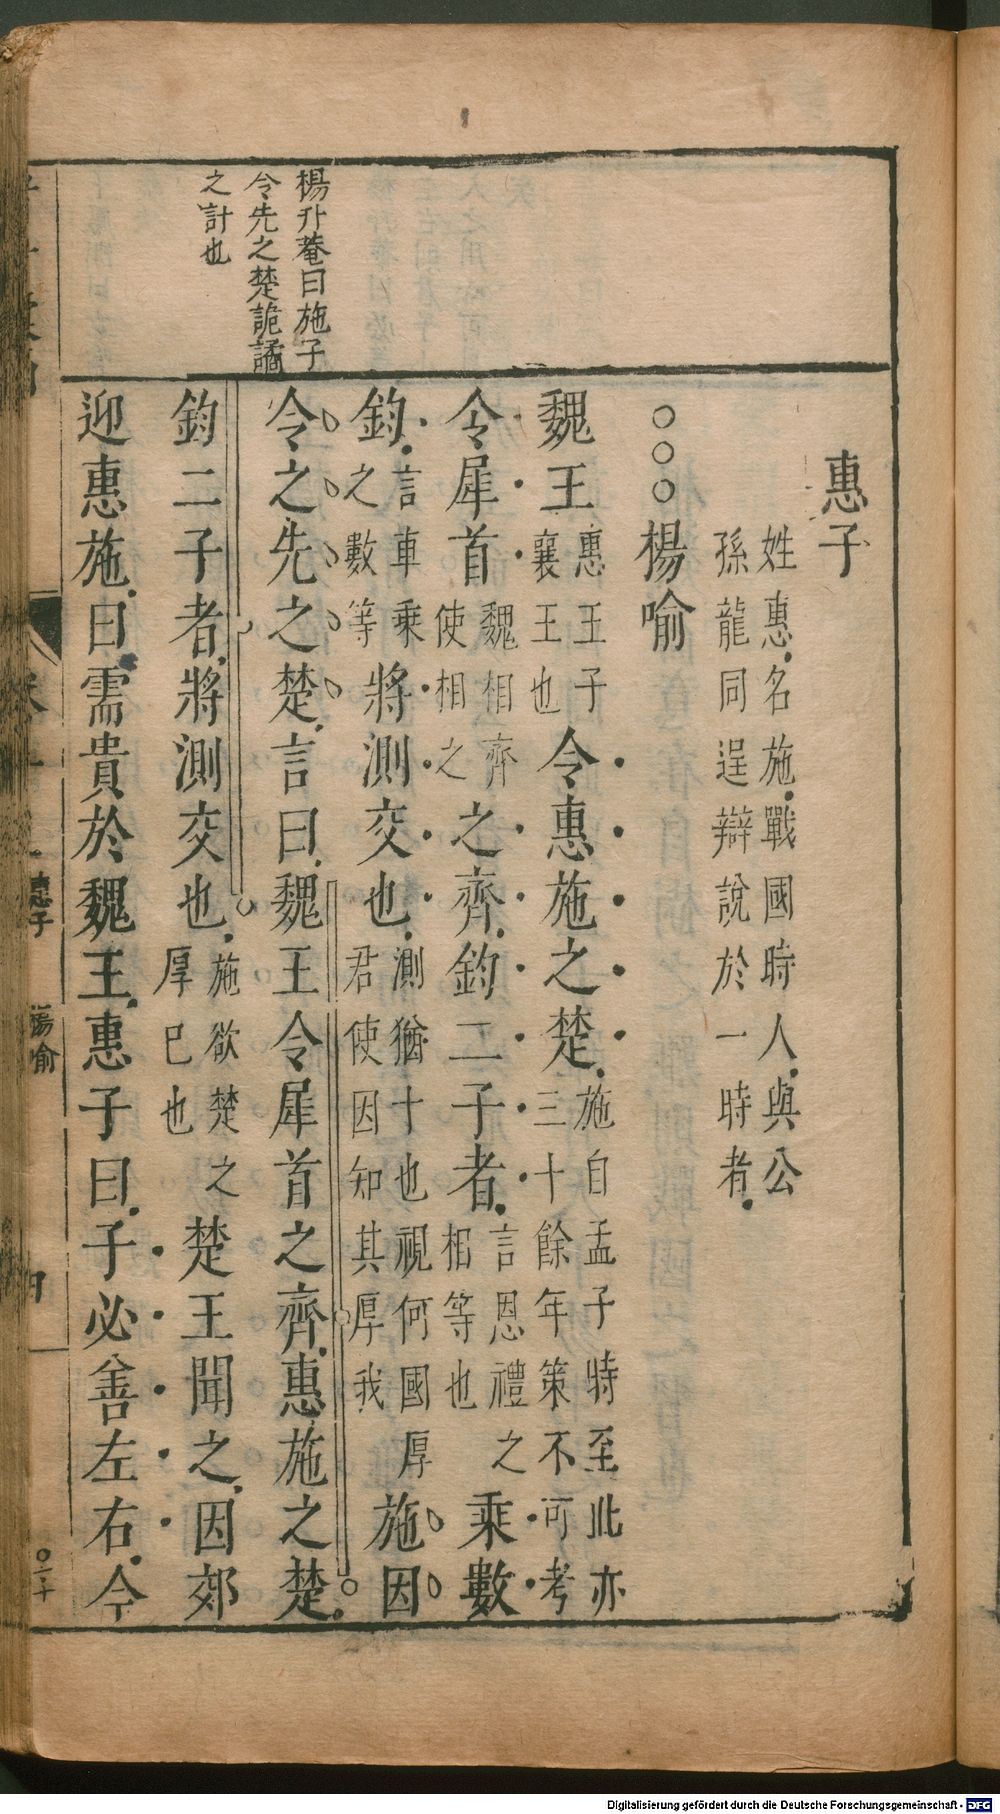 惠子
姓惠名施戰國時人與公
孫龍同逞辯說於一時者
○○○楊喻
魏王惠王子襄王也令惠施之楚施自孟子時至此亦三十餘年策不可考
令犀首魏相齊使相之之齊鈞二子者言恩禮之相等也乘數
鈞言車乘之數等將測交也測猶卜也視何國厚君使因知其厚我施因
令之先之楚言曰魏王令犀首之齊惠施之楚
鈞二子者將測交也施欲楚之厚已也楚王聞之因郊
迎惠施曰需貴於魏王惠子曰子必善左右今
楊升菴曰施子
令先之楚詭譎
之計也
惠子
楊喻
Digitalisierung gefördert durch die Deutsche Forschungsgemeinschaft - DFG